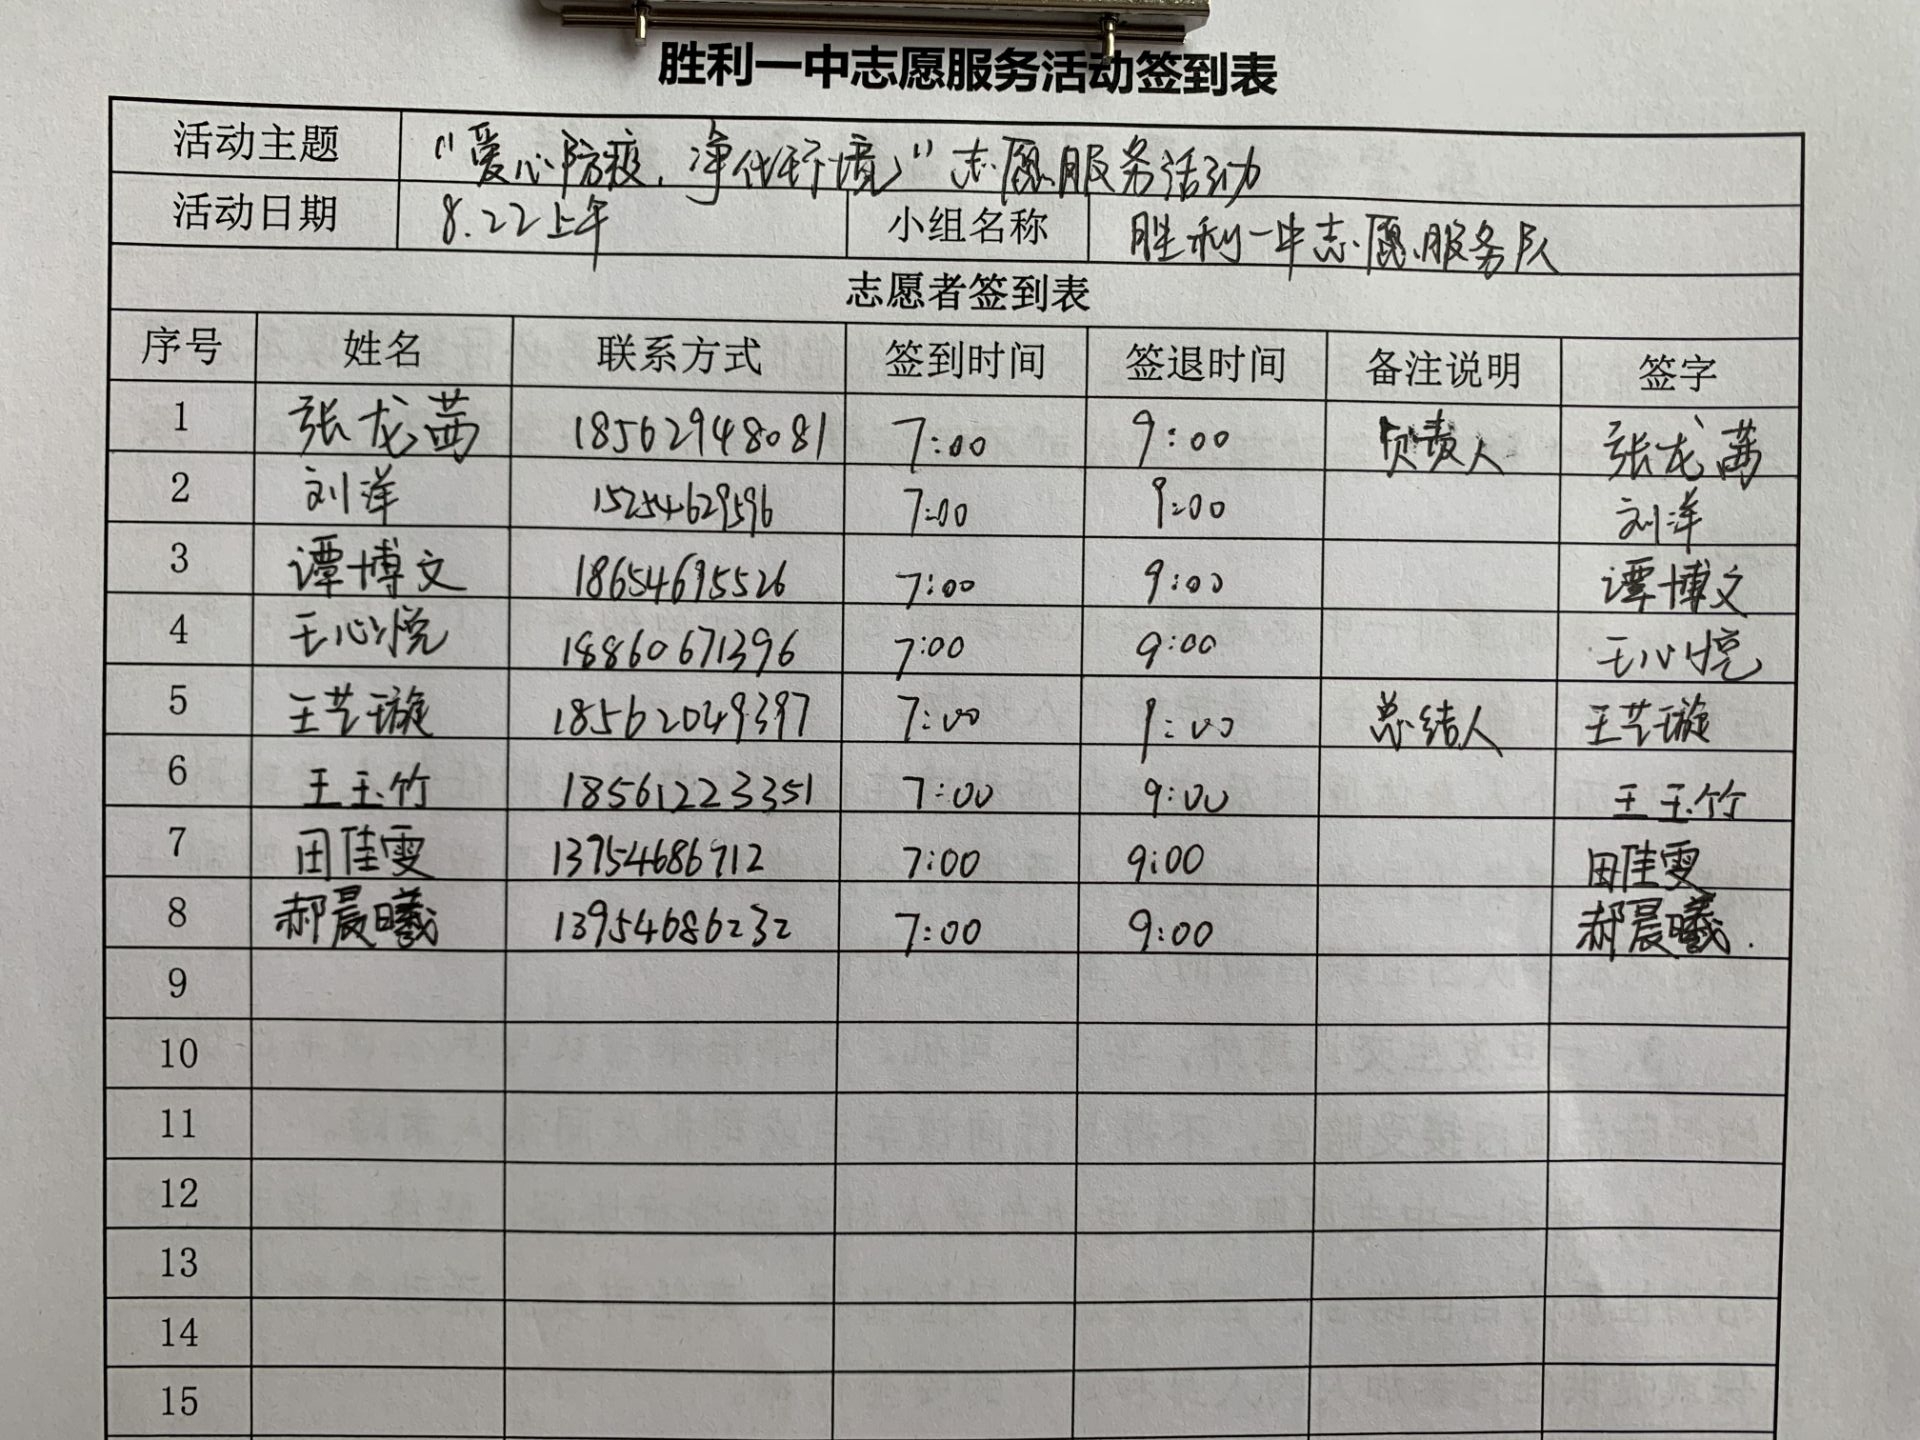 胜利一中志愿服务活动签到表
活动主题 “爱心防疫，净化环境”志愿服务活动
活动日期 8.22上午 小组名称 胜利一中志愿服务队
志愿者签到表
序号 姓名 联系方式 签到时间 签退时间 备注说明 签字
1 张龙茜 18562948081 7:00 9:00 负责人 张龙茜
2 刘洋 15254629596 7:00 9:00 刘洋
3 谭博文 18654695526 7:00 9:00 谭博文
4 王心悦 18860671396 7:00 9:00 王心悦
5 王艺璇 18562049397 7:00 9:00 总结人 王艺璇
6 王玉竹 18561223351 7:00 9:00 王玉竹
7 田佳雯 13754686712 7:00 9:00 田佳雯
8 郝晨曦 13954686232 7:00 9:00 郝晨曦.
9
10
11
12
13
14
15